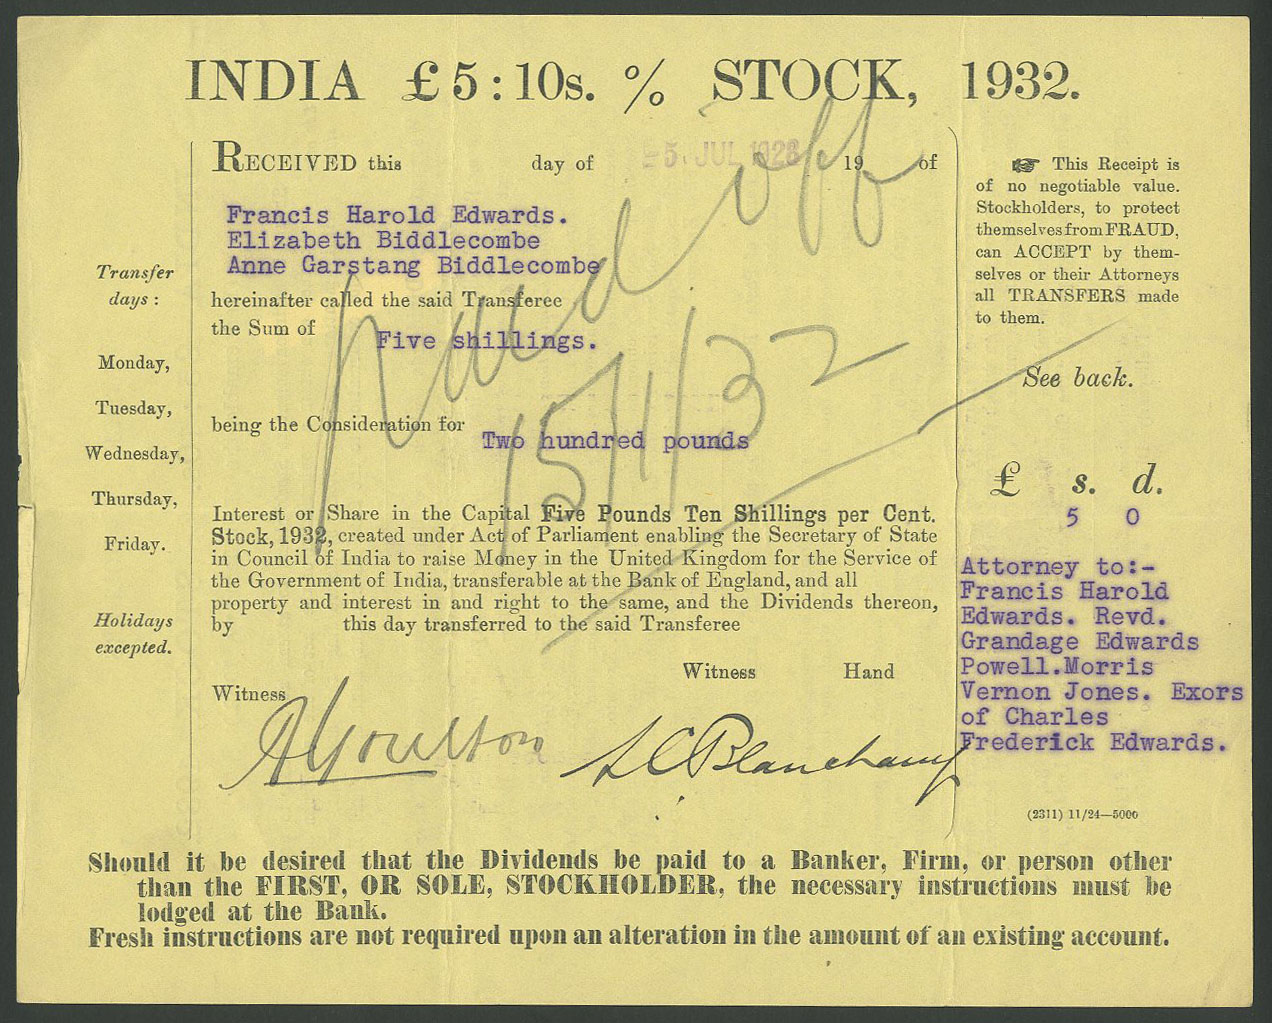 INDIA £5:10s. % STOCK, 1932.
RECEIVED this day of 5 JUL 1926 19 of
Francis Harold Edwards.
Elizabeth Biddlecombe
Anne Garstang Biddlecombe
hereinafter called the said Transferee
the Sum of Five shillings.
being the Consideration for Two hundred pounds
Interest or Share in the Capital Five Pounds Ten Shillings per Cent.
Stock, 1932, created under Act of Parliament enabling the Secretary of State
in Council of India to raise Money in the United Kingdom for the Service of
the Government of India, transferable at the Bank of England, and all
property and interest in and right to the same, and the Dividends thereon,
by this day transferred to the said Transferee
Witness Hand
Witness
Paid off
15/1/32
Transfer
days:
Monday,
Tuesday,
Wednesday,
Thursday,
Friday.
Holidays
excepted.
☞ This Receipt is
of no negotiable value.
Stockholders, to protect
themselves from FRAUD,
can ACCEPT by them-
selves or their Attorneys
all TRANSFERS made
to them.
See back.
£ s. d.
5 0
Attorney to:-
Francis Harold
Edwards. Revd.
Grandage Edwards
Powell.Morris
Vernon Jones. Exors
of Charles
Frederick Edwards.
(2311) 11/24—5000
Should it be desired that the Dividends be paid to a Banker, Firm, or person other
than the FIRST, OR SOLE, STOCKHOLDER, the necessary instructions must be
lodged at the Bank.
Fresh instructions are not required upon an alteration in the amount of an existing account.